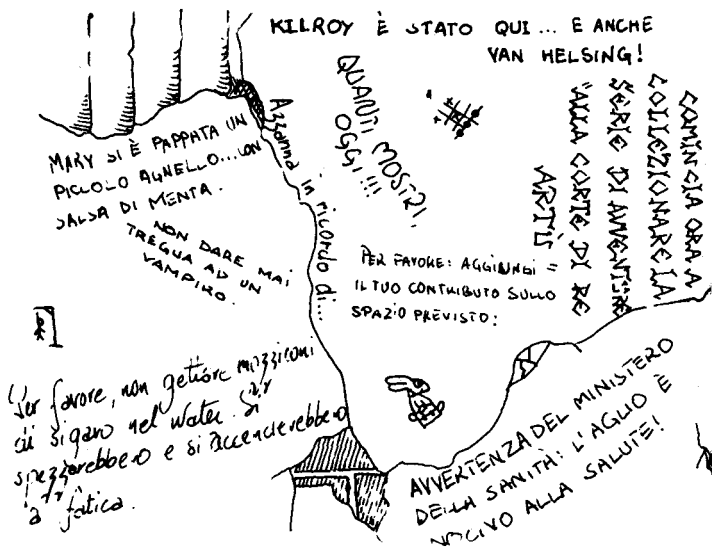 KILROY È STATO QUI... E ANCHE
VAN HELSING!
MARY SI È PAPPATA UN
PICCOLO AGNELLO...CON
SALSA DI MENTA.
NON DARE MAI
TREGUA AD UN
VAMPIRO.
Azzanna in ricordo di...
QUANTI MOSTRI,
OGGI!!!
COMINCIA ORA A
COLLEZIONARE LA
SERIE DI AVVENTURE
"ALLA CORTE DI RE
ARTÙ
PER FAVORE: AGGIUNGI =
IL TUO CONTRIBUTO SULLO
SPAZIO PREVISTO:
Per favore, non gettare mozziconi
di sigaro nel water. Si
spezzerebbero e si accenderebbero
a fatica.
AVVERTENZA DEL MINISTERO
DELLA SANITÀ: L'AGLIO È
NOCIVO ALLA SALUTE!